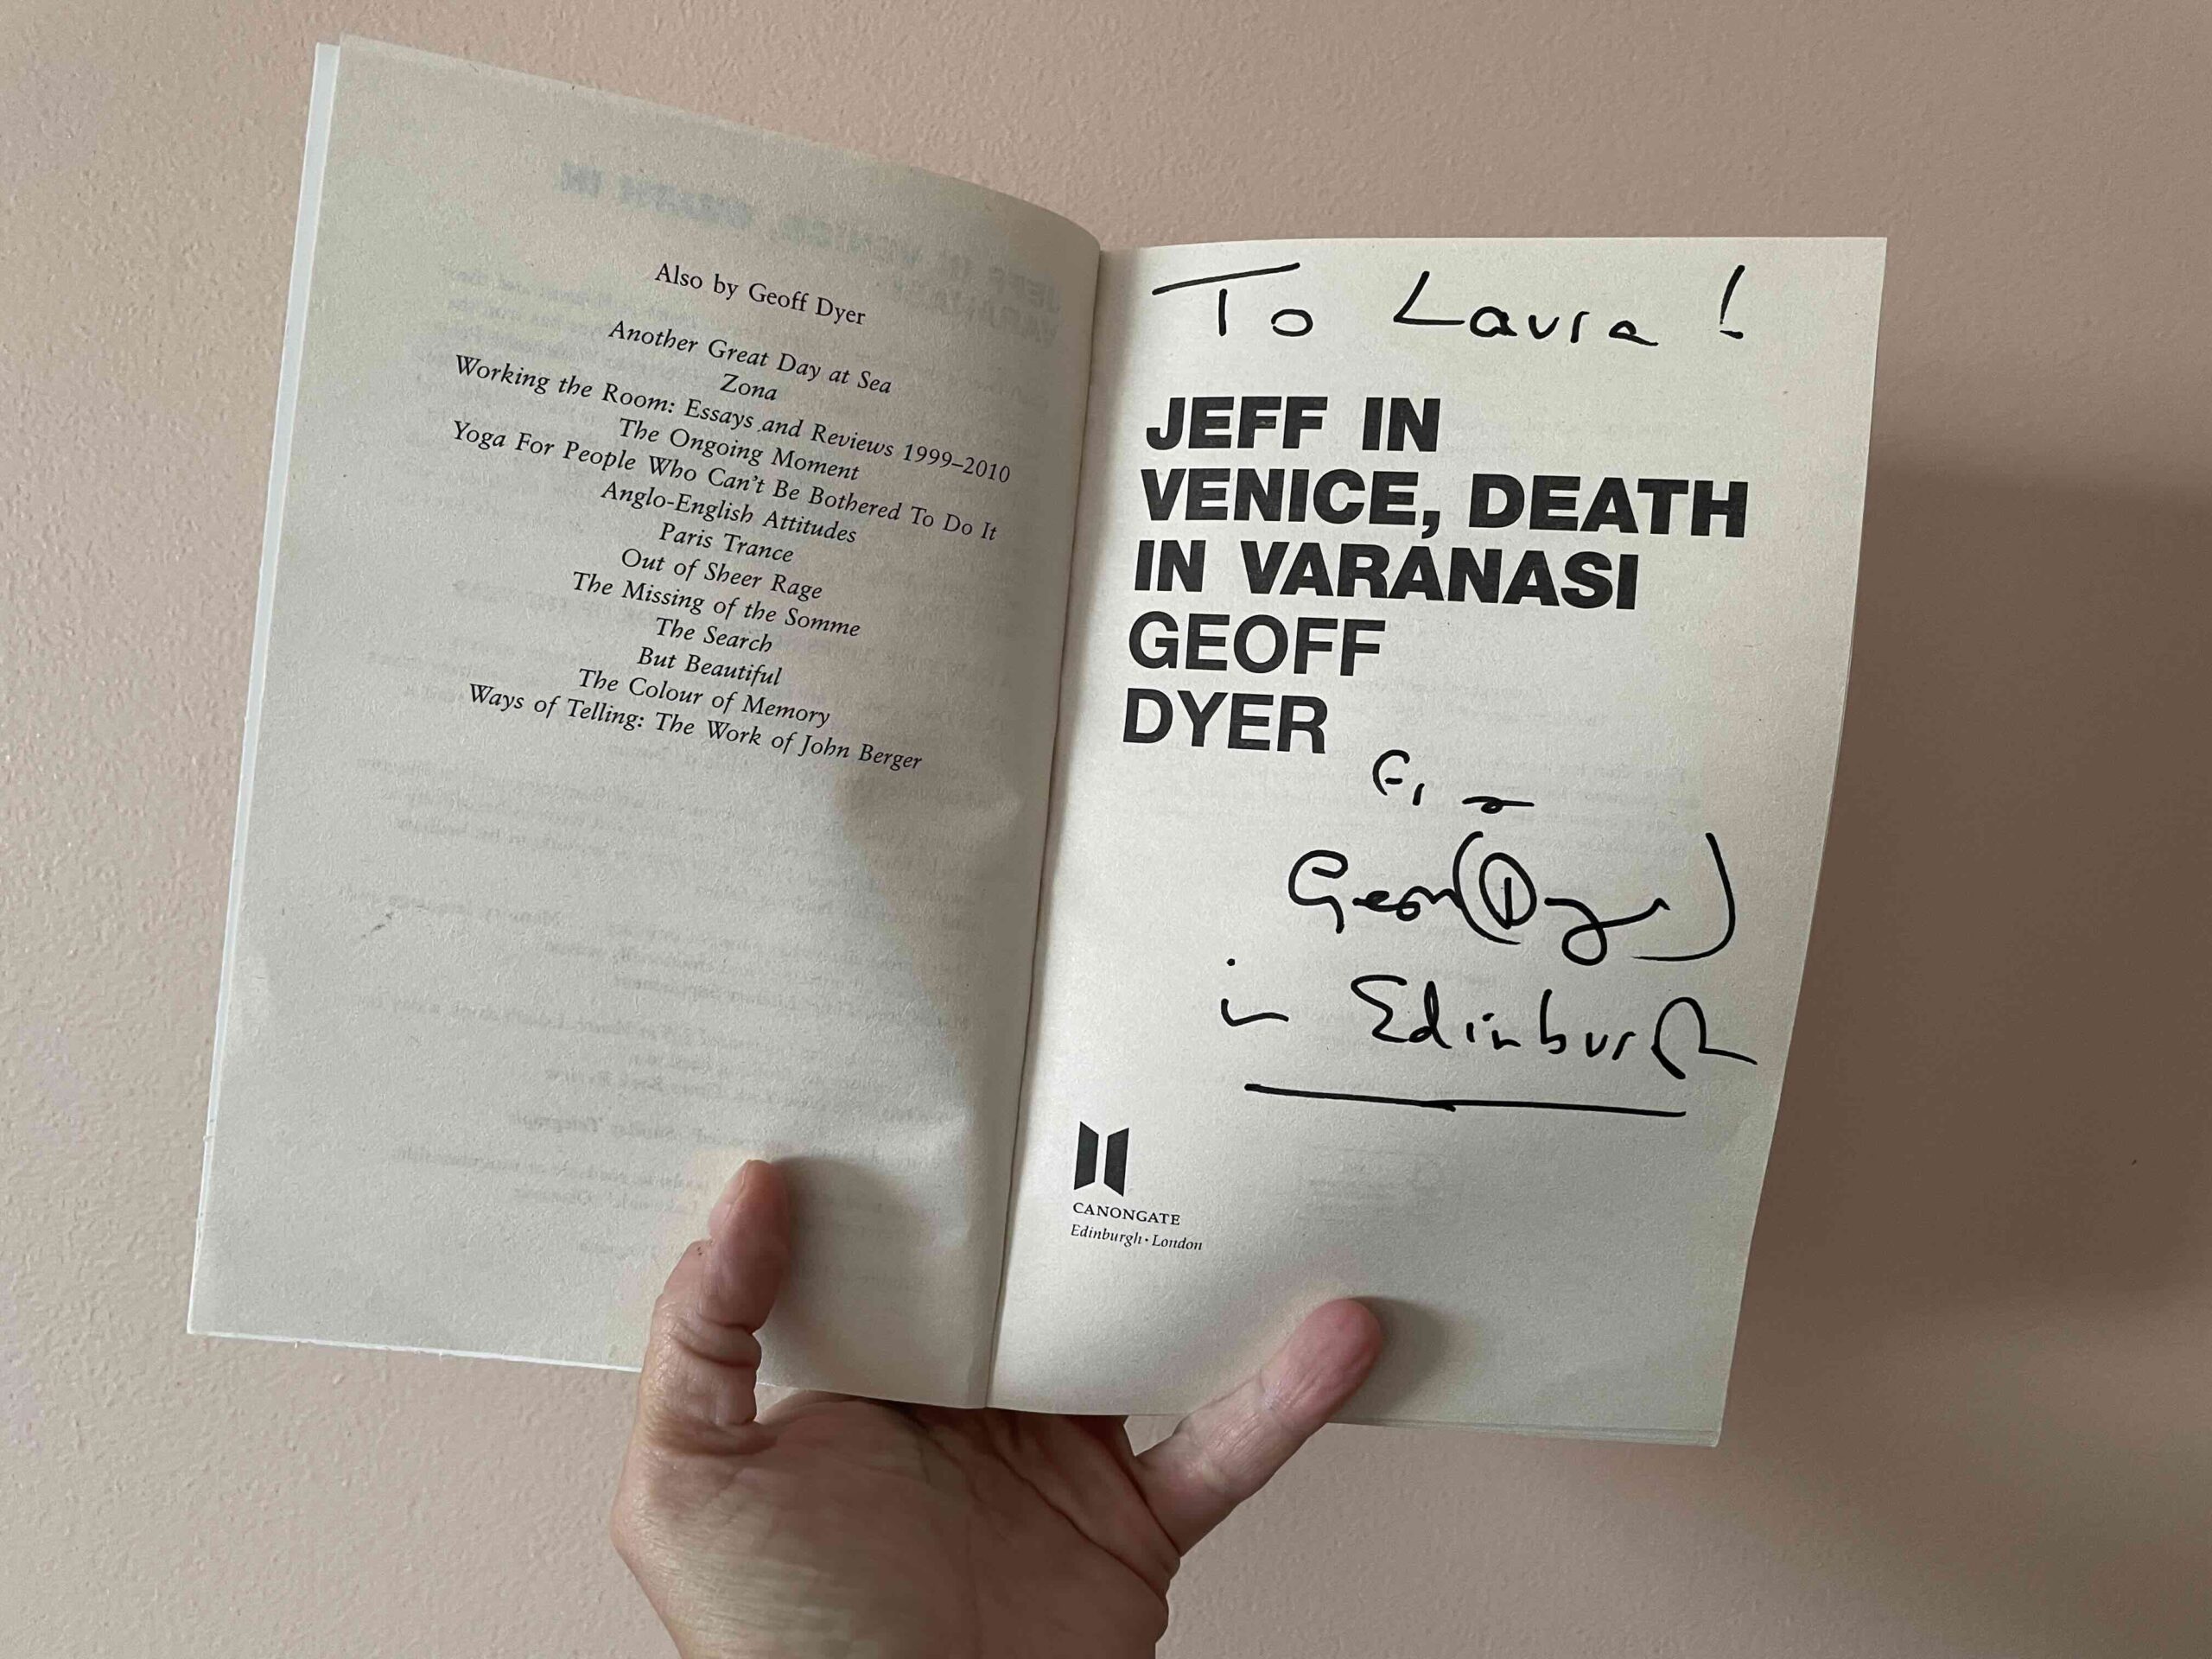 Also by Geoff Dyer
Another Great Day at Sea
Zona
Working the Room: Essays and Reviews 1999–2010
The Ongoing Moment
Yoga For People Who Can't Be Bothered To Do It
Anglo-English Attitudes
Paris Trance
Out of Sheer Rage
The Missing of the Somme
The Search
But Beautiful
The Colour of Memory
Ways of Telling: The Work of John Berger
To Laura!
JEFF IN
VENICE, DEATH
IN VARANASI
GEOFF
DYER
Geoff (Dyer)
in Edinburgh
CANONGATE
Edinburgh · London